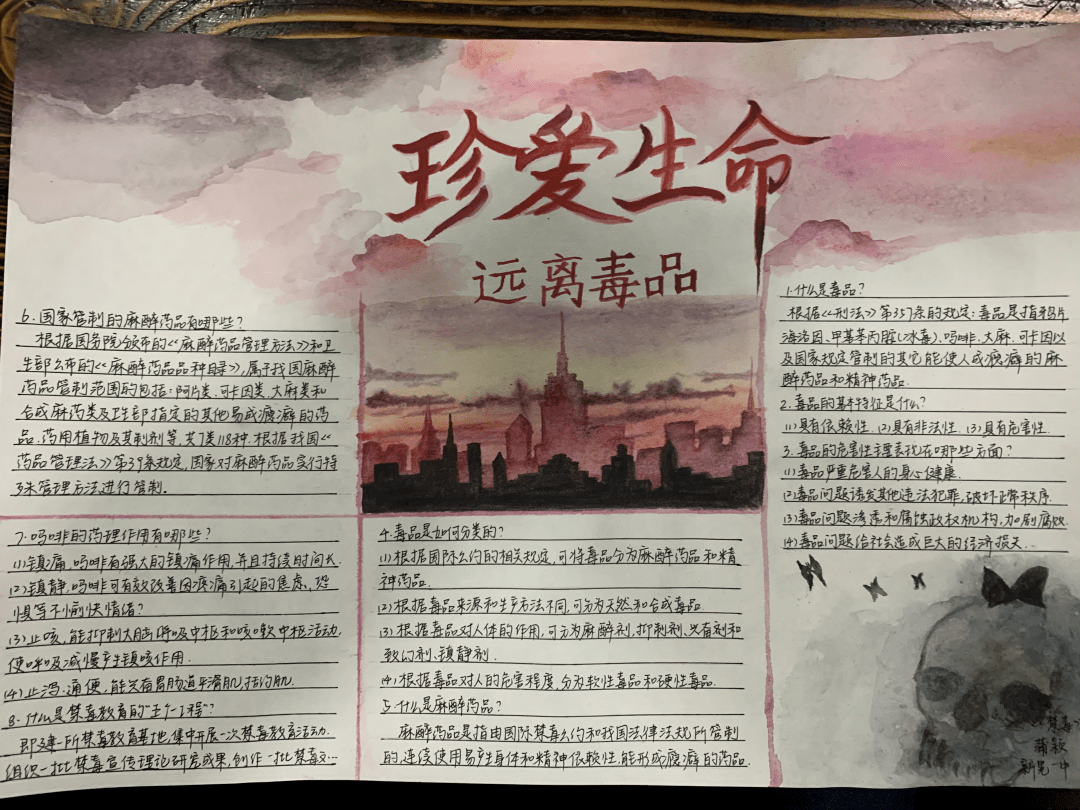 珍爱生命
远离毒品
1.什么是毒品?
根据《刑法》第357条的规定:毒品是指鸦片
海洛因、甲基苯丙胺(冰毒)、吗啡、大麻、可卡因以
及国家规定管制的其它能使人成瘾癖的麻
醉药品和精神药品.
2.毒品的基本特征是什么?
(1)具有依赖性. (2)具有非法性. (3)具有危害性.
3.毒品的危害性主要表现在哪些方面?
(1)毒品严重危害人的身心健康.
(2)毒品问题诱发其他违法犯罪,破坏正常秩序.
(3)毒品问题渗透和腐蚀政权机构,加剧腐败.
(4)毒品问题给社会造成巨大的经济损失...
4.毒品是如何分类的?
(1)根据国际公约的相关规定,可将毒品分为麻醉药品和精
神药品.
(2)根据毒品来源和生产方法不同,可分为天然和合成毒品.
(3)根据毒品对人体的作用,可分为麻醉剂、抑制剂、兴奋剂和
致幻剂、镇静剂.
(4)根据毒品对人的危害程度,分为软性毒品和硬性毒品.
5.什么是麻醉药品?
麻醉药品是指由国际禁毒公约和我国法律法规所管制
的,连续使用易产生身体和精神依赖性,能形成瘾癖的药品.
6.国家管制的麻醉药品有哪些?
根据国务院颁布的《麻醉药品管理方法》和卫
生部公布的《麻醉药品品种目录》,属于我国麻醉
药品管制范围的包括:阿片类、可卡因类、大麻类和
合成麻药类及卫生部指定的其他易成瘾癖的药
品、药用植物及其制剂等,共7类118种.根据我国《
药品管理法》第39条规定,国家对麻醉药品实行特
殊管理方法进行管制.
7.吗啡的药理作用有哪些?
(1)镇痛,吗啡有强大的镇痛作用,并且持续时间长.
(2)镇静,吗啡可有效改善因疼痛引起的焦虑、恐
惧等不愉快情绪?
(3)止咳,能抑制大脑呼吸中枢和咳嗽中枢活动,
使呼吸减慢产生镇咳作用.
(4)止泻、通便,能兴奋胃肠道平滑肌、括约肌.
8.什么是禁毒教育的"五个一工程"?
即建一所禁毒教育基地,集中开展一次禁毒教育活动.
组织一批禁毒宣传理论研究成果,创作一批禁毒文...
禁毒
蒲颖
新晃一中